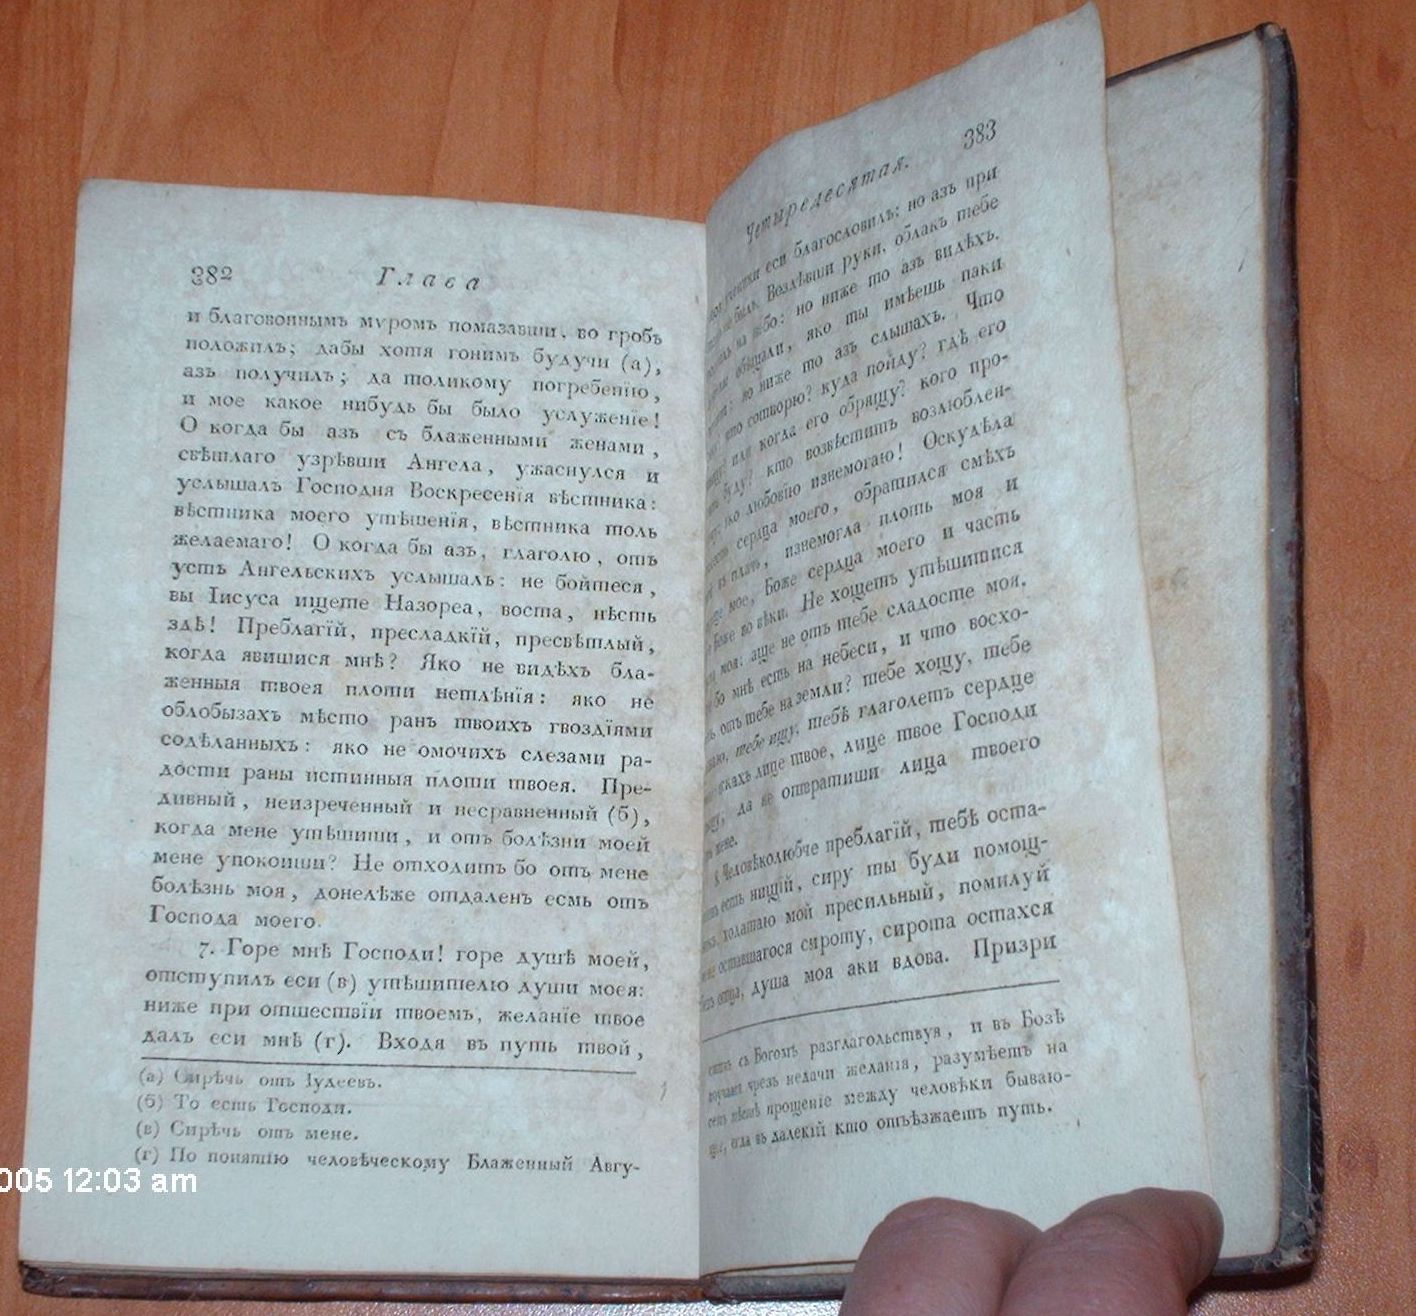 382 Глава
и благовоннымъ мѵромъ помазавши, во гробъ
положилъ; дабы хотя гонимъ будучи (а),
азъ получилъ; да толикому погребенію,
и мое какое нибудь бы было услуженіе!
О когда бы азъ съ блаженными женами,
свѣтлаго узрѣвши Ангела, ужаснулся и
услышалъ Господня Воскресенія вѣстника:
вѣстника моего утѣшенія, вѣстника толь
желаемаго! О когда бы азъ, глаголю, отъ
устъ Ангельскихъ услышалъ: не бойтеся,
вы Іисуса ищете Назореа, воста, нѣсть
здѣ! Преблагій, пресладкій, пресвѣтлый,
когда явишися мнѣ? Яко не видѣхъ бла-
женныя твоея плоти нетлѣнія: яко не
облобызахъ мѣсто ранъ твоихъ гвоздіями
содѣланныхъ: яко не омочихъ слезами ра-
дости раны истинныя плоти твоея. Пре-
дивный, неизреченный и несравненный (б),
когда мене утѣшиши, и отъ болѣзни моей
мене упокоиши? Не отходитъ бо отъ мене
болѣзнь моя, донелѣже отдаленъ есмь отъ
Господа моего.
7. Горе мнѣ Господи! горе душѣ моей,
отступилъ еси (в) утѣшителю души моея:
ниже при отшествіи твоемъ, желаніе твое
далъ еси мнѣ (г). Входя въ путь твой,
(а) Сирѣчь отъ Іудеевъ.
(б) То есть Господи.
(в) Сирѣчь отъ мене.
(г) По понятію человѣческому Блаженный Авгу-
Четыредесятая. 383
еси благословилъ; но азъ при
было. Воздѣвши руки, облакъ тебе
на небо: но ниже то азъ видѣхъ.
обѣщали, яко ты имѣешь паки
но ниже то азъ слышахъ. Что
что сотворю? куда пойду? гдѣ его
или когда его обрящу? кого про-
буду? кто возвѣститъ возлюблен-
яко любовію изнемогаю! Оскудѣла
сердца моего, обратился смѣхъ
въ плачь, изнемогла плоть моя и
мое, Боже сердца моего и часть
Боже во вѣки. Не хощетъ утѣшитися
моя: аще не отъ тебе сладосте моя.
бо мнѣ есть на небеси, и что восхо-
отъ тебе на земли? тебе хощу, тебе
тебе ищу, тебѣ глаголетъ сердце
лице твое, лице твое Господи
да не отвратиши лица твоего
мене.
8. Человѣколюбче преблагій, тебѣ оста-
есть нищій, сиру ты буди помощ-
ходатаю мой пресильный, помилуй
оставшагося сироту, сирота остахся
безъ отца, душа моя аки вдова. Призри
съ Богомъ разглагольствуя, и въ Бозѣ
чрезъ недачи желанія, разумѣетъ на
прощеніе между человѣки бываю-
егда въ далекій кто отъѣзжаетъ путь.
005 12:03 am